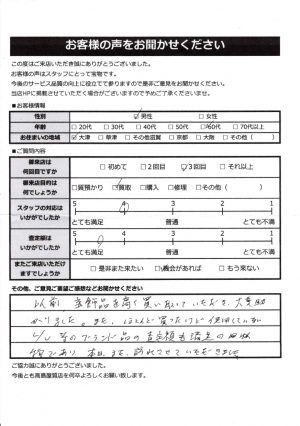 お客様の声をお聞かせください
この度はご来店いただき誠にありがとうございました。
お客様の声はスタッフにとって宝物です。
今後のサービス品質の向上に役立てて参りますので是非ご意見をお聞かせください。
当店HPに掲載させていただく場合がございますので予めご了承くださいませ。
■お客様情報
性別 ☑男性 □女性
年齢 □20代 □30代 □40代 □50代 ☑60代 □70代以上
お住まいの地域 ☑大津 □草津 □その他滋賀 □京都 □大阪 □その他
■ご質問内容
御来店は何回目ですか □初めて □2回目 ☑3回目 □それ以上
御来店目的は何でしょうか □質預かり ☑買取 □購入 □修理 □その他（ ）
スタッフの対応はいかがでしたか 5 4 3 2 1
とても満足 普通 とても不満
査定額はいかがでしたか 5 4 3 2 1
とても満足 普通 とても不満
またご来店いただけますでしょうか □是非また来たい ☑機会があれば □もう来ない
その他、ご意見ご要望ご感想などお聞かせください
以前 貴金品を高く買い取っていただき、大変助
かりました。また、ほとんど買ったけど使用していな
い 等のブランド品の査定額も満足の
であり、本日、また、訪れさせていただきました
ご協力誠にありがとうございました。
今後とも高島屋質店を何卒よろしくお願い致します。